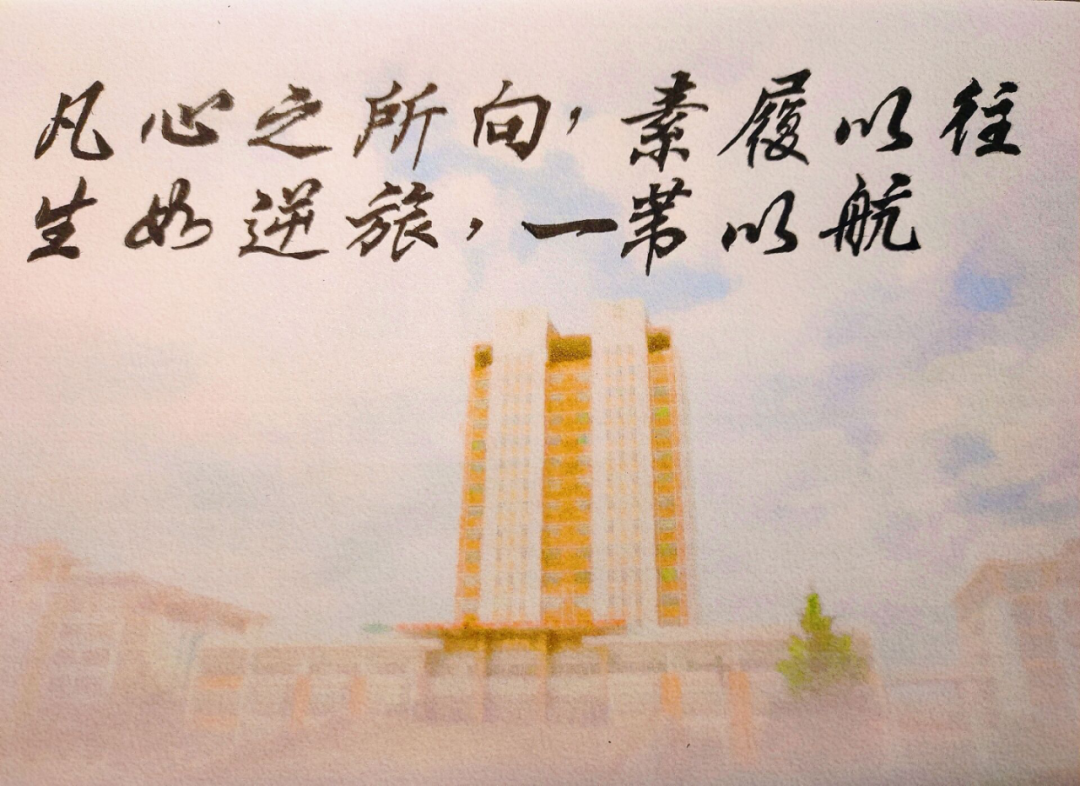 凡心之所向，素履以往
生如逆旅，一苇以航